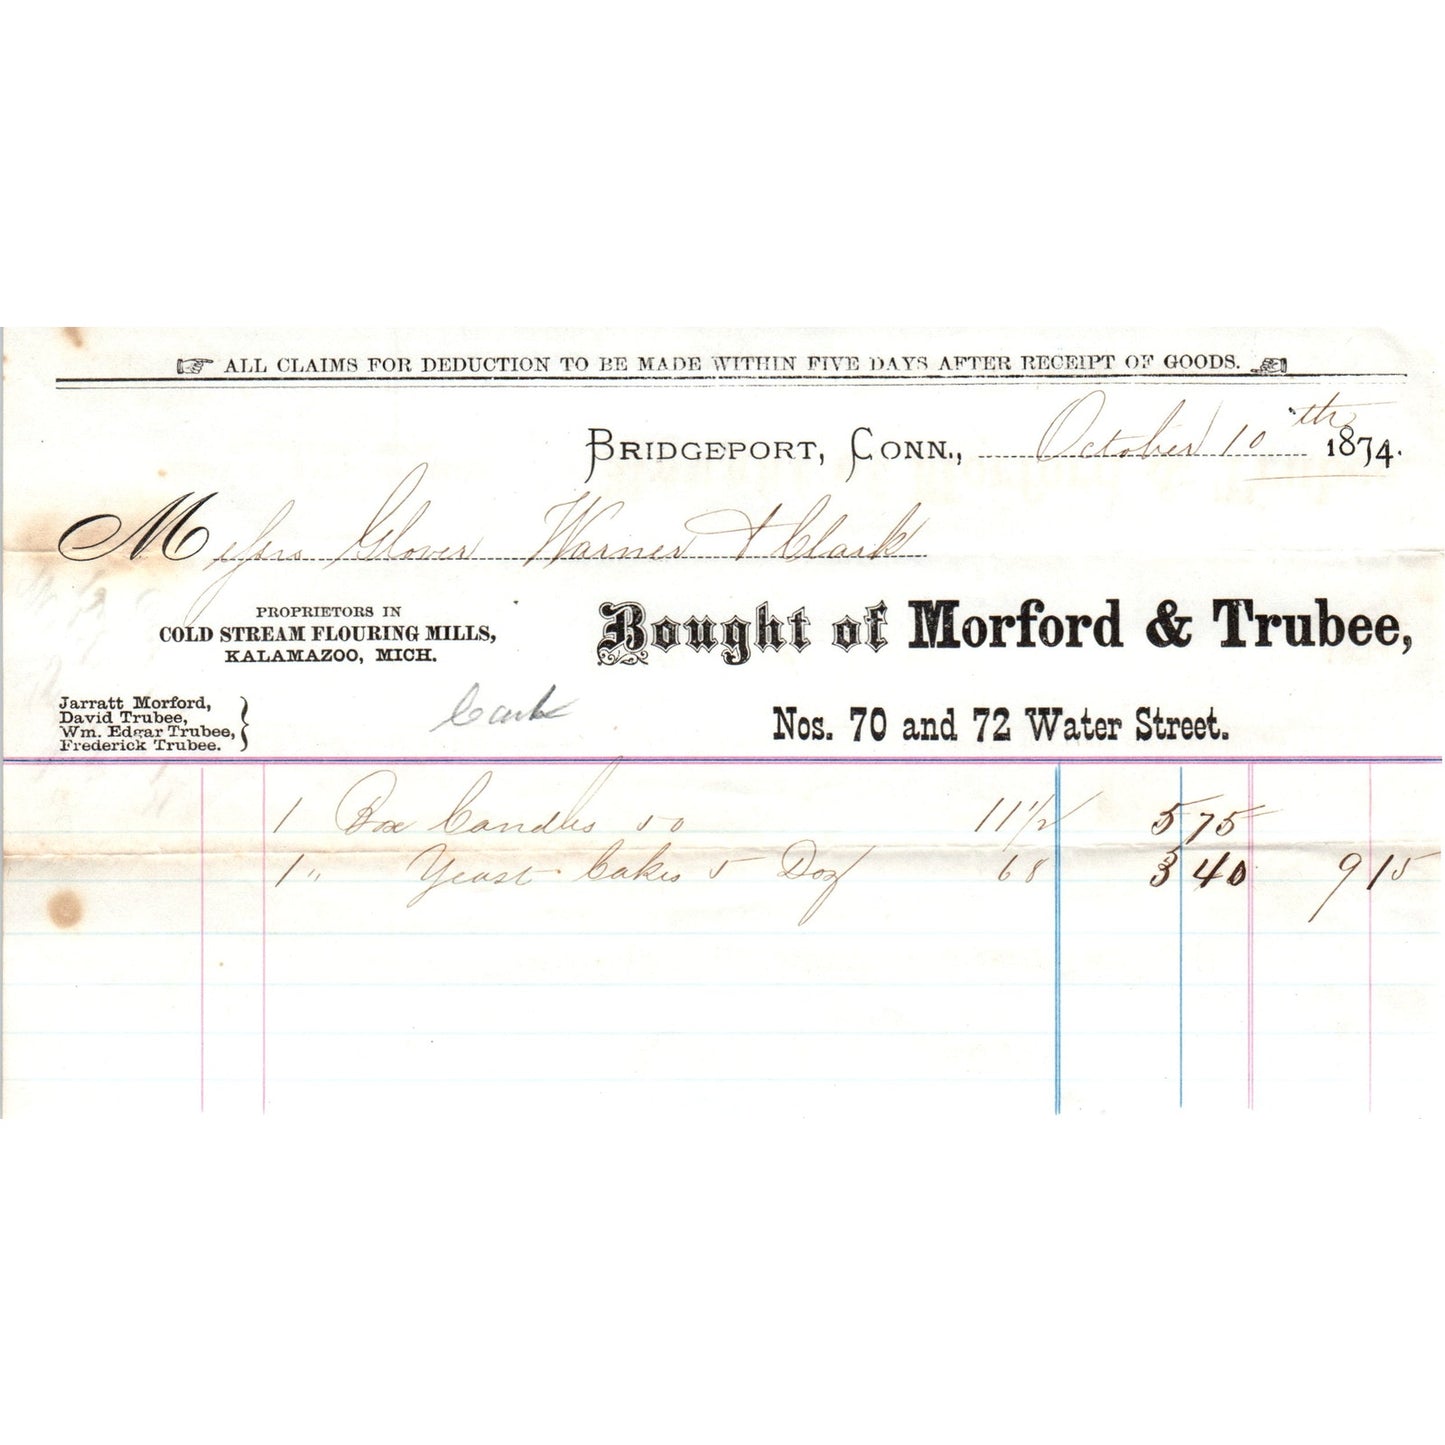 ALL CLAIMS FOR DEDUCTION TO BE MADE WITHIN FIVE DAYS AFTER RECEIPT OF GOODS.
BRIDGEPORT, CONN., October 10th 1874.
Messrs Glover Warner & Clark
PROPRIETORS IN
COLD STREAM FLOURING MILLS,
KALAMAZOO, MICH.
Bought of Morford & Trubee,
Jarratt Morford,
David Trubee,
Wm. Edgar Trubee,
Frederick Trubee.
Nos. 70 and 72 Water Street.
1 Box Candles 50 11½ 5 75
1 " Yeast Cakes 5 Doz 68 3 40 9 15